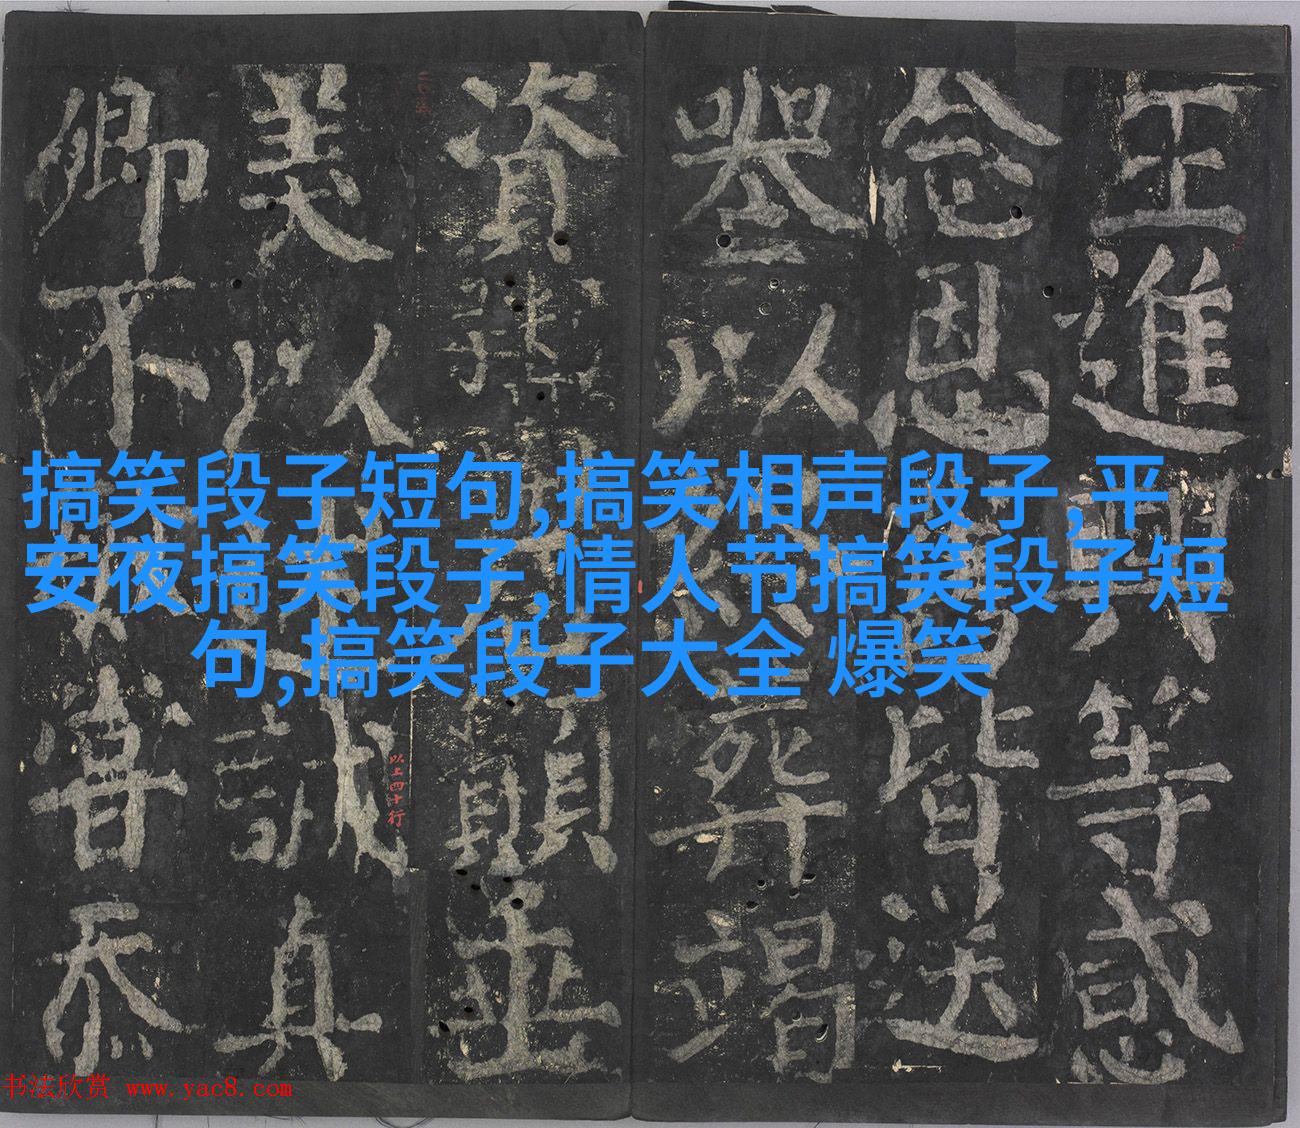 搞笑段子短句,搞笑相声段子,平
安夜搞笑段子,情人节搞笑段子短
句,搞笑段子大全 爆笑
王進興等感
念恩皆送
以葬竭
資顗並
美以誠真
卿不昔忝
以上四十行
书法欣赏 www.yac8.com